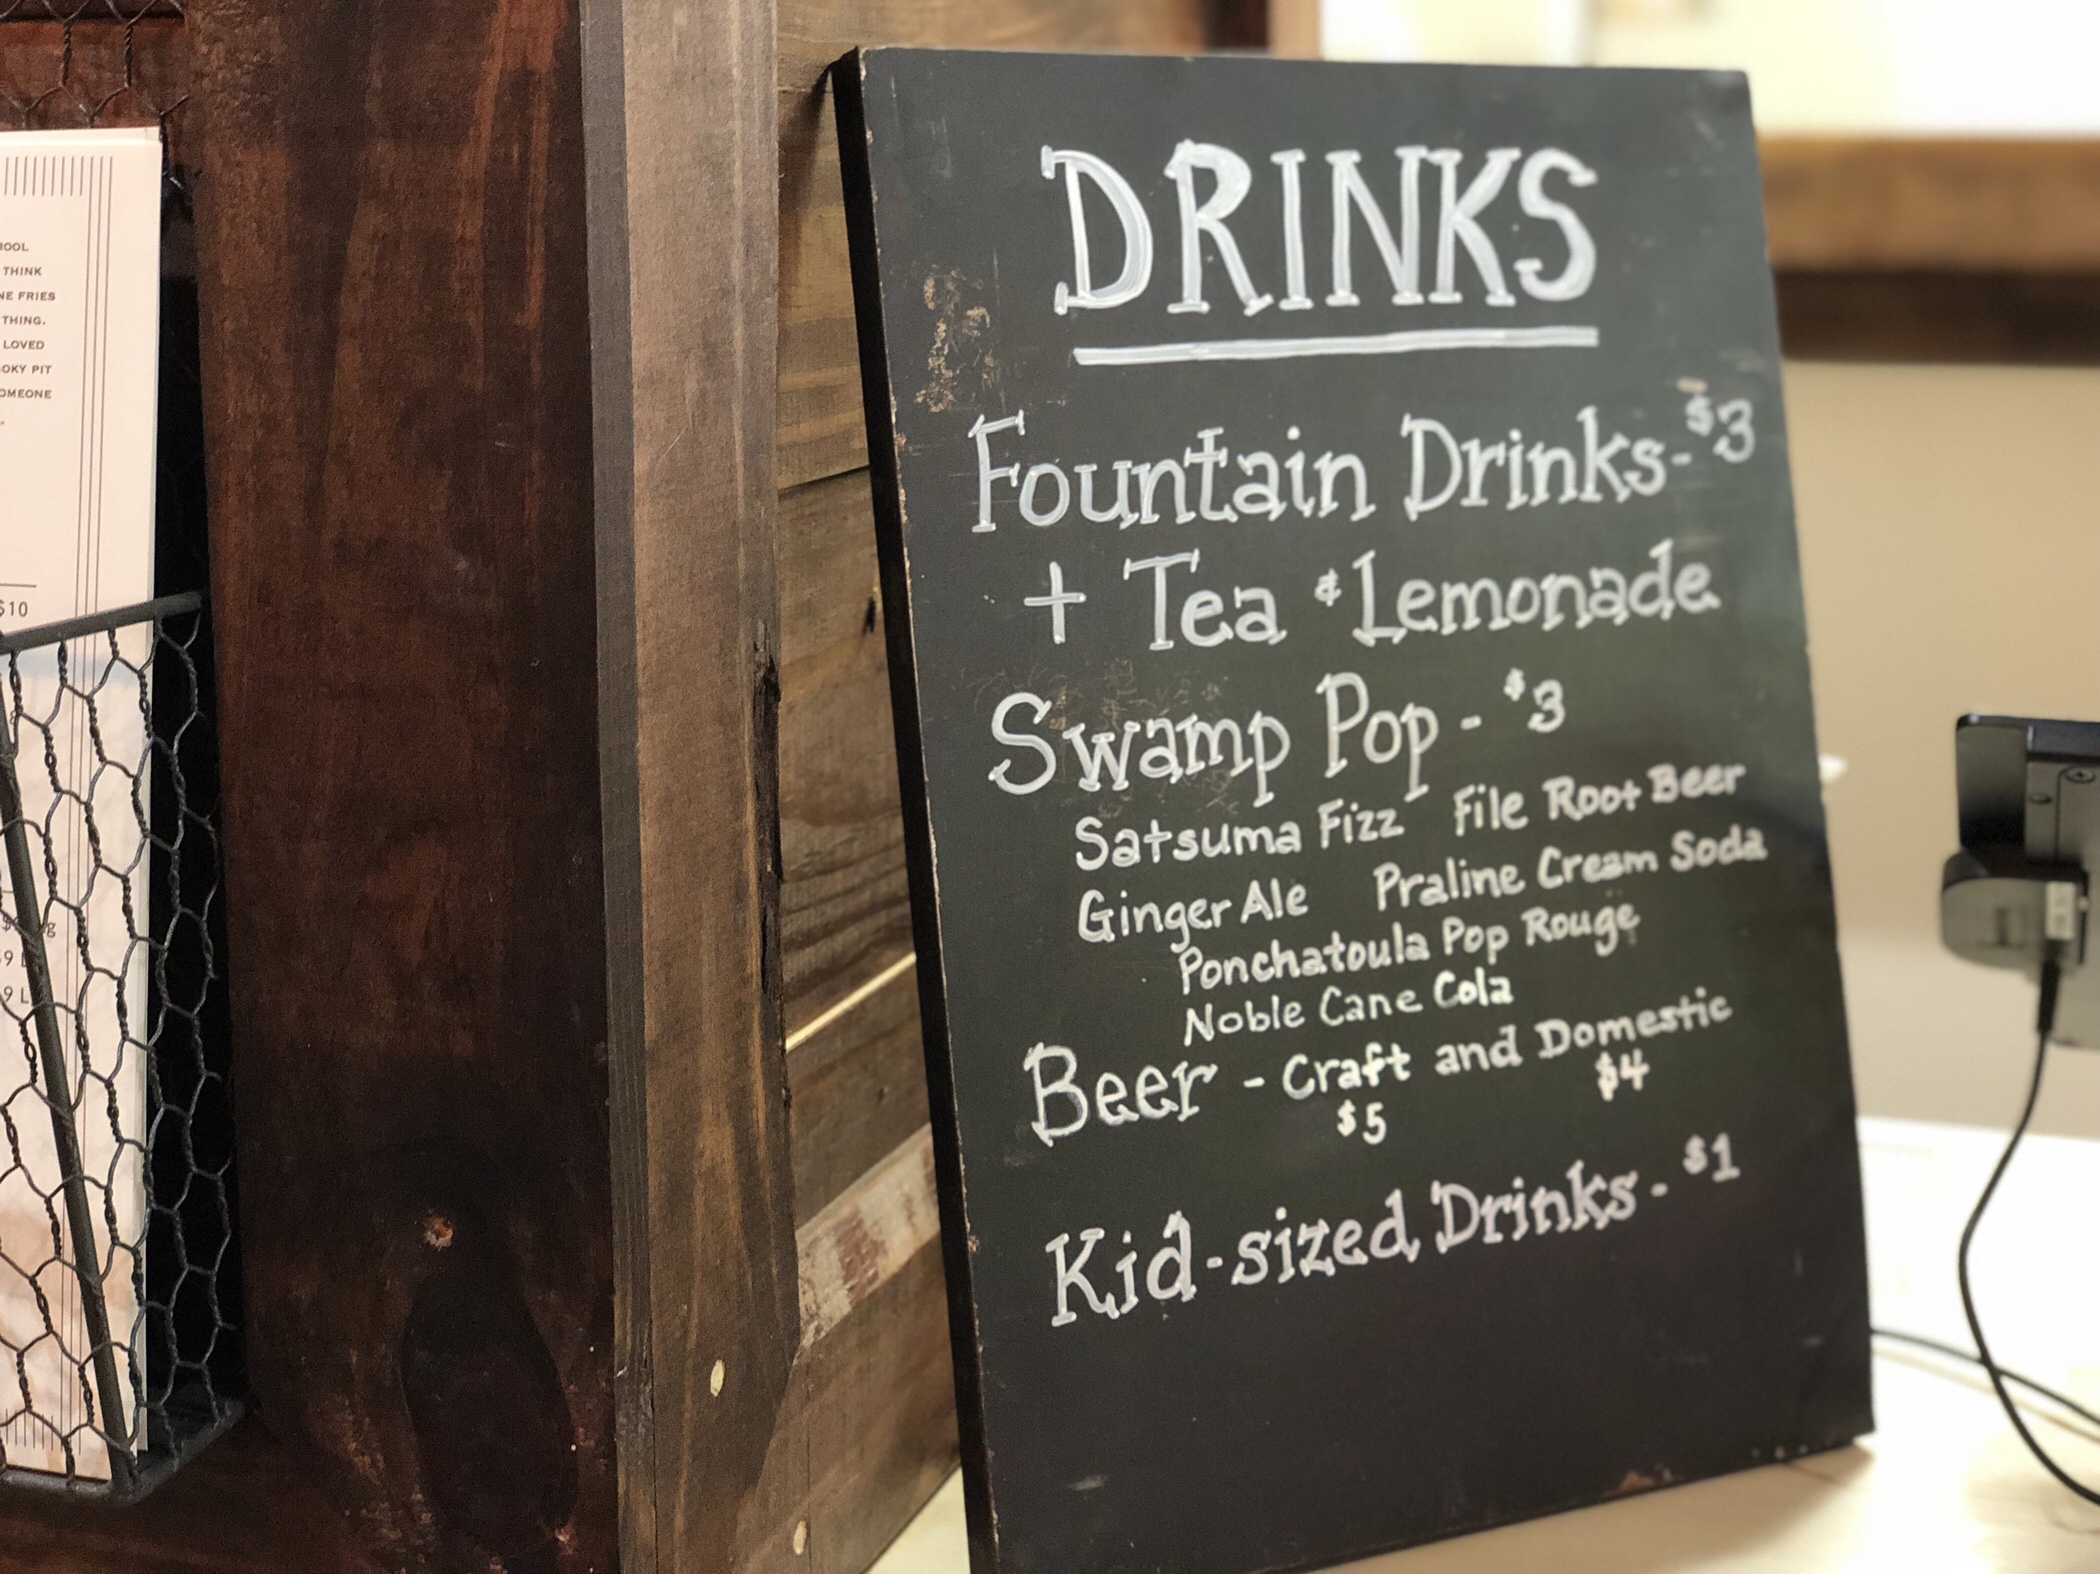 HOOL
THINK
NE FRIES
THING.
LOVED
OKY PIT
OMEONE
$10
DRINKS
Fountain Drinks - $3
+ Tea & Lemonade
Swamp Pop - $3
Satsuma Fizz File Root Beer
Ginger Ale Praline Cream Soda
Ponchatoula Pop Rouge
Noble Cane Cola
Beer - Craft and Domestic
$5 $4
Kid-sized Drinks - $1